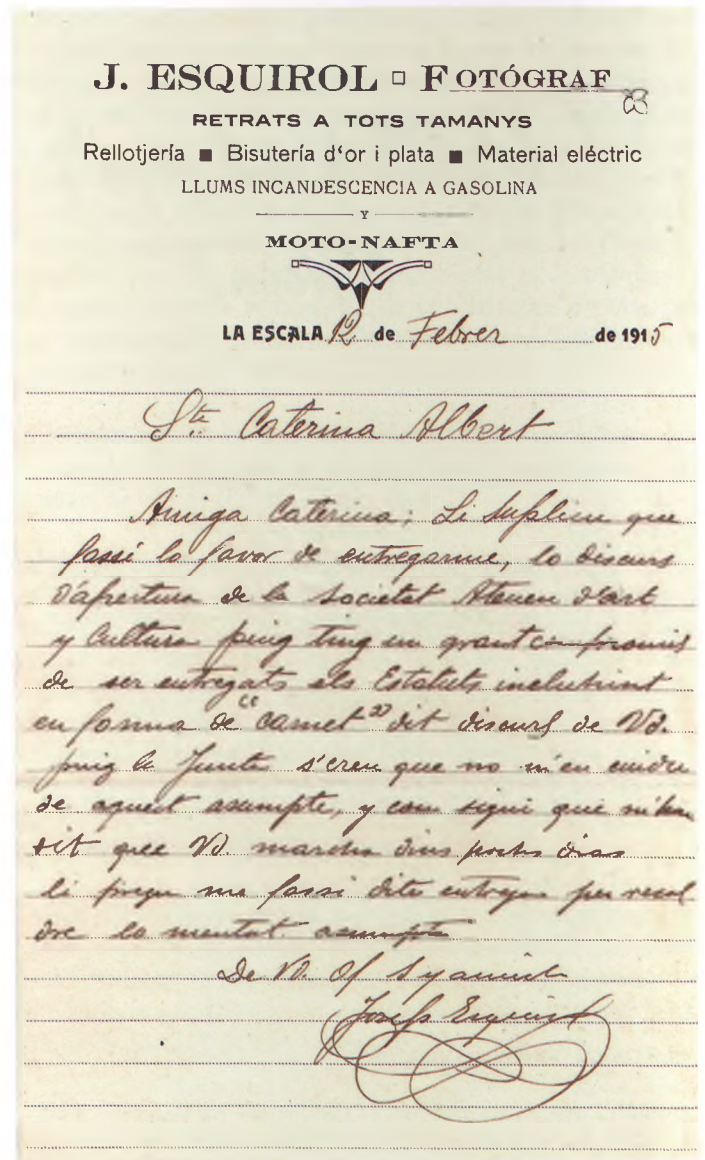 J. ESQUIROL ▫ FOTÓGRAF
RETRATS A TOTS TAMANYS
Rellotjería ■ Bisutería d'or i plata ■ Material eléctric
LLUMS INCANDESCENCIA A GASOLINA
Y
MOTO-NAFTA
LA ESCALA 12 de Febrer de 1915
Sta Caterina Albert
Amiga Caterina; Li suplicu que
fassi lo favor de entregarme, lo discurs
d'apertura de la Societat Ateneu d'art
y Cultura puig ting un grant compromis
de ser entregats els Estatuts incluhint
en forma de "Carnet" dit discurs de Vd.
puig la Junta s'creu que no m'en cuidu
de aquest asumpte, y com sigui que m'han
dit que Vd. marcha dins pochs dias
li pregu me fassi dita entrega per resol
dre lo mentat asumpte
De Vd. af S y amich
Joseph Esquirol